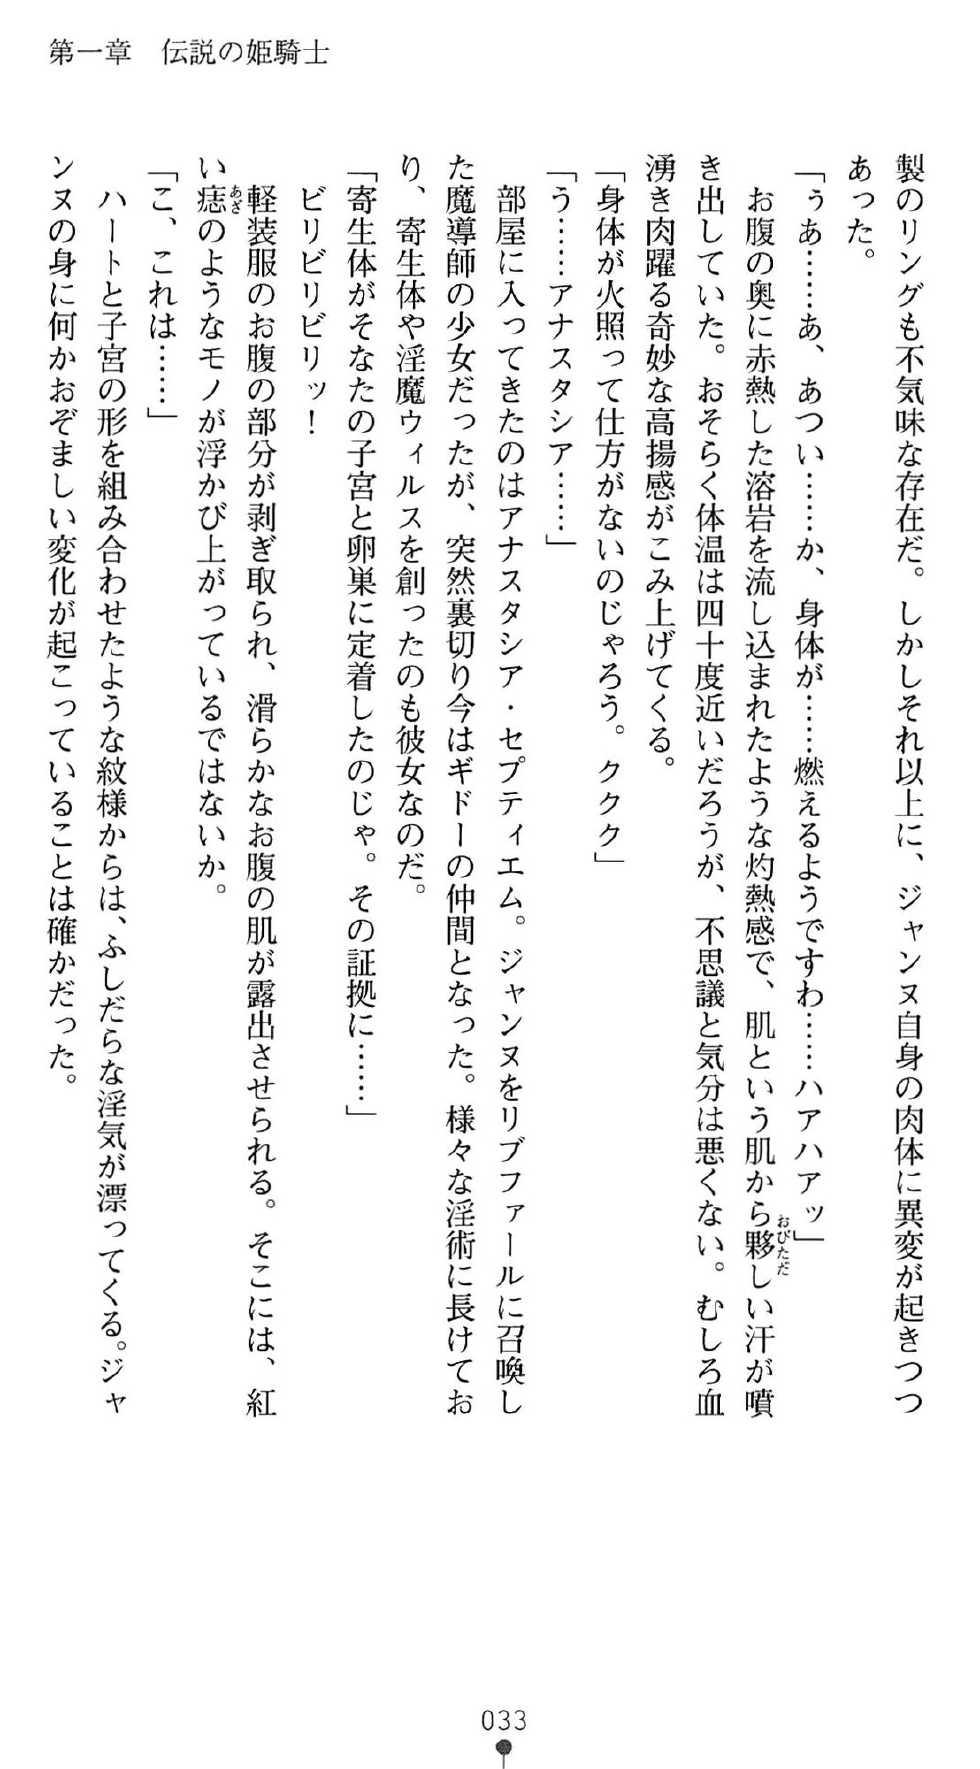 第一章　伝説の姫騎士
製のリングも不気味な存在だ。しかしそれ以上に、ジャンヌ自身の肉体に異変が起きつつ
あった。
「ぅあ……あ、あつい……か、身体が……燃えるようですわ……ハアハアッ」
　お腹の奥に赤熱した溶岩を流し込まれたような灼熱感で、肌という肌から夥しい汗が噴
き出していた。おそらく体温は四十度近いだろうが、不思議と気分は悪くない。むしろ血
湧き肉躍る奇妙な高揚感がこみ上げてくる。
「身体が火照って仕方がないのじゃろう。ククク」
「う……アナスタシア……」
　部屋に入ってきたのはアナスタシア・セプティエム。ジャンヌをリブファールに召喚し
た魔導師の少女だったが、突然裏切り今はギドーの仲間となった。様々な淫術に長けてお
り、寄生体や淫魔ウィルスを創ったのも彼女なのだ。
「寄生体がそなたの子宮と卵巣に定着したのじゃ。その証拠に……」
　ビリビリビリッ！
　軽装服のお腹の部分が剥ぎ取られ、滑らかなお腹の肌が露出させられる。そこには、紅
い痣のようなモノが浮かび上がっているではないか。
「こ、これは……」
　ハートと子宮の形を組み合わせたような紋様からは、ふしだらな淫気が漂ってくる。ジャ
ンヌの身に何かおぞましい変化が起こっていることは確かだった。
おびただ
あざ
033